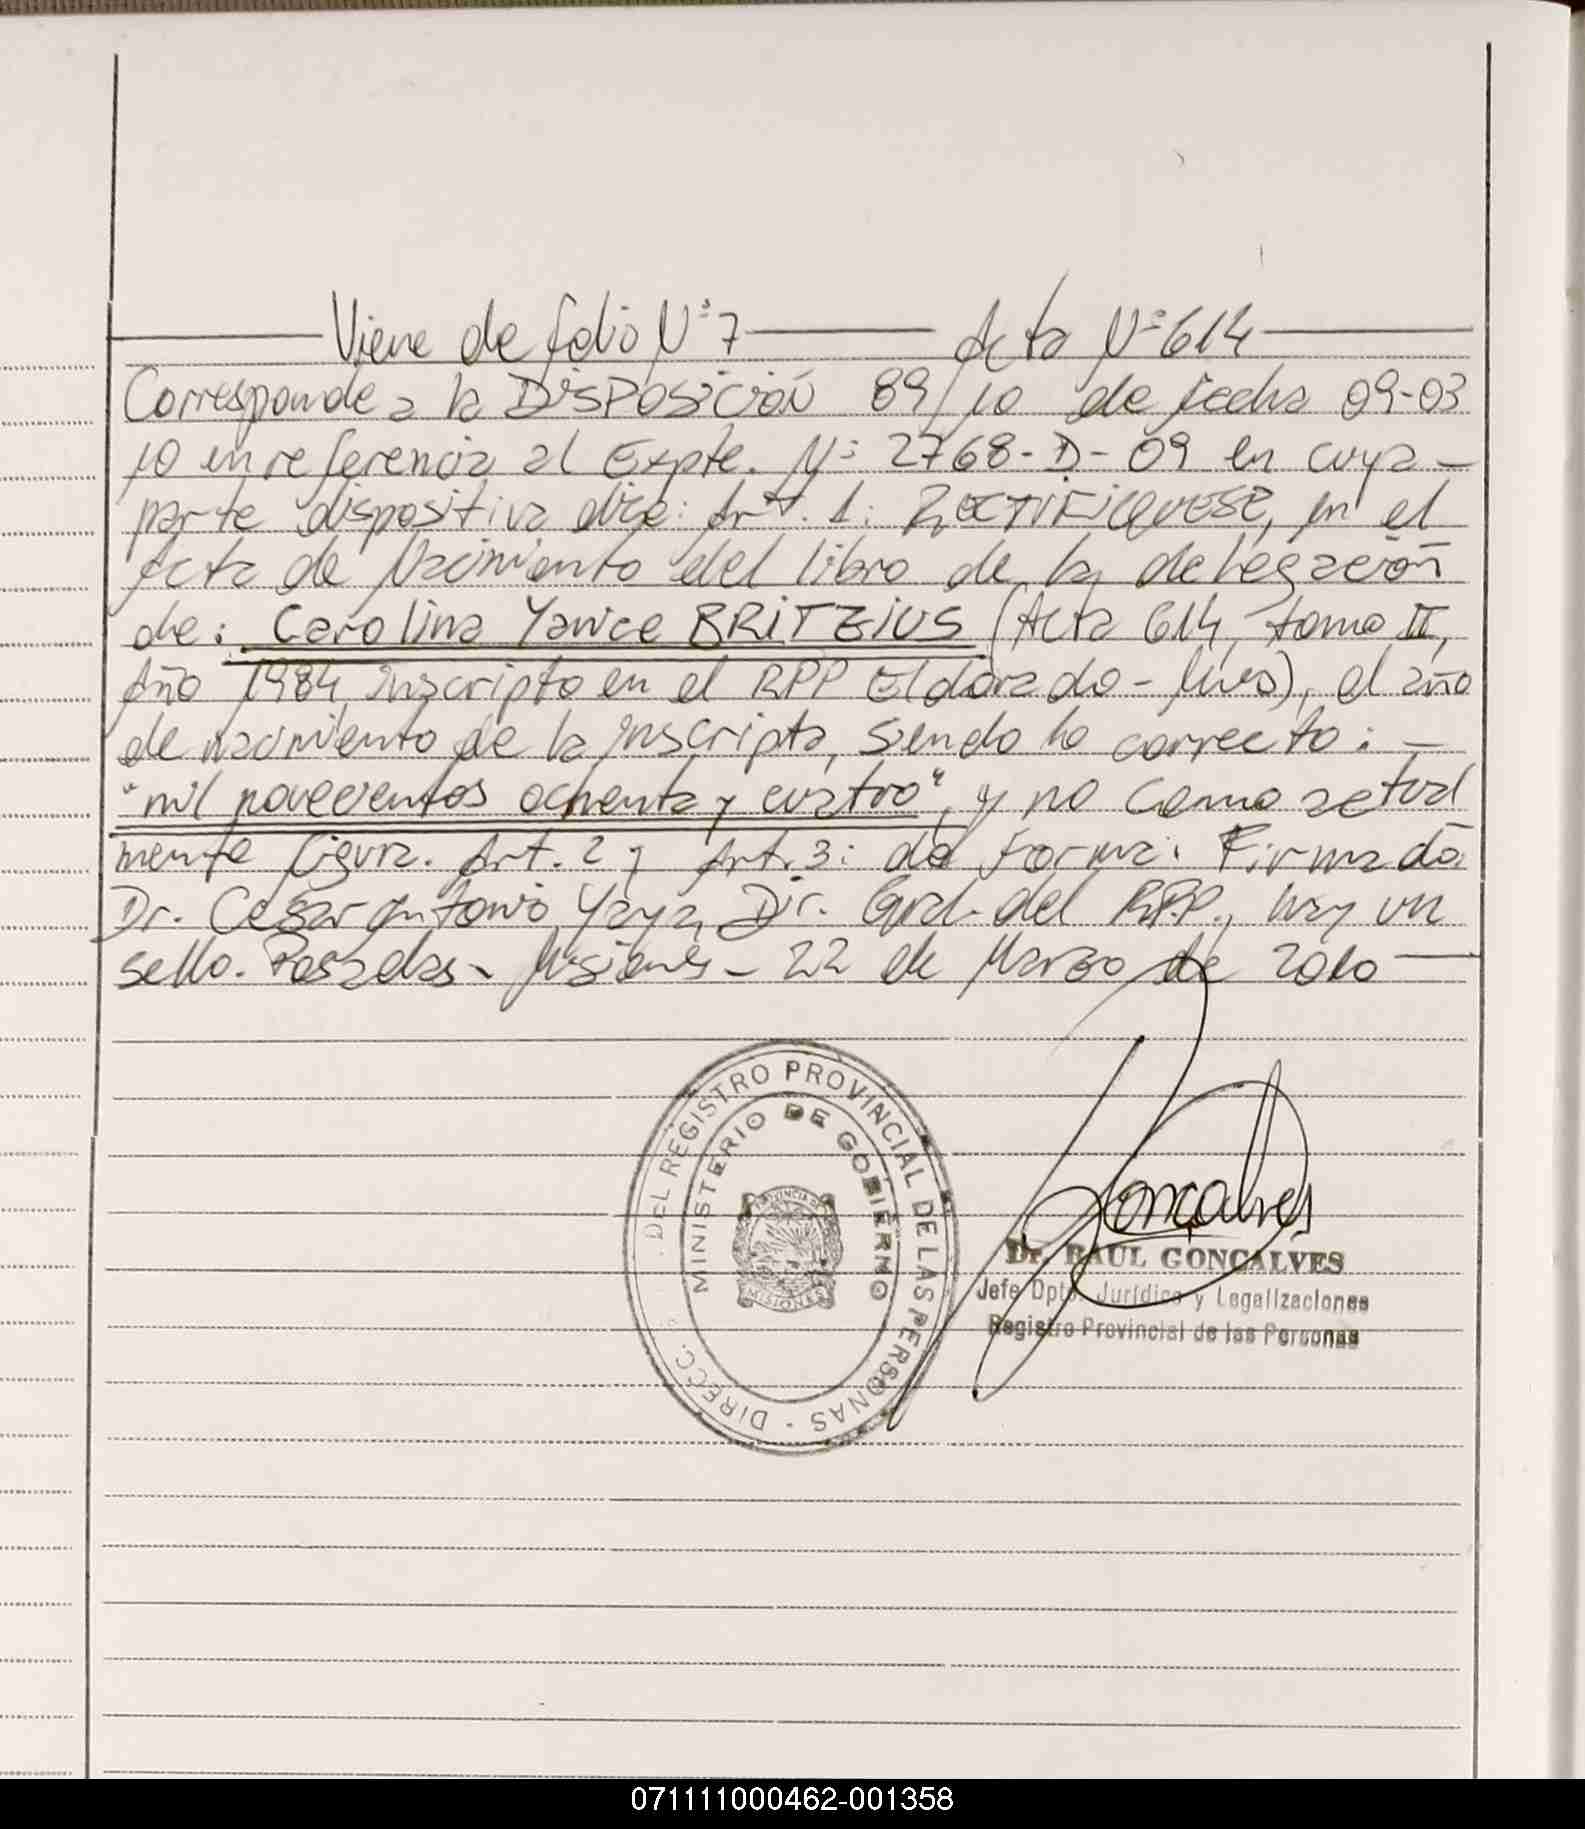 Viene de folio Nº 7 Acta Nº 614
Corresponde a la DISPOSICIÓN 89/10 de fecha 09-03
10 en referencia al Expte. Nº 2768-D-09 en cuya -
parte dispositiva dice: Art. 1: RECTIFIQUESE, en el
Acta de Nacimiento del libro de la delegación
de: Carolina Yanice BRITZIUS (Acta 614, tomo II,
Año 1984, inscripto en el RPP Eldorado - Mnes), el año
de nacimiento de la inscripta, siendo lo correcto: -
"mil novecientos ochenta y cuatro", y no como actual
mente figura. Art. 2 y Art. 3: de forma. Firmado:
Dr. Cesar Antonio Yaya, Dir. Gral. del RPP., hay un
sello. Posadas - Misiones - 22 de Marzo de 2010
DIRECC. DEL REGISTRO PROVINCIAL DE LAS PERSONAS -
MINISTERIO DE GOBIERNO
PROVINCIA DE
MISIONES
Goncalves
Dr. RAUL GONCALVES
Jefe Dpto. Jurídico y Legalizaciones
Registro Provincial de las Personas
071111000462-001358